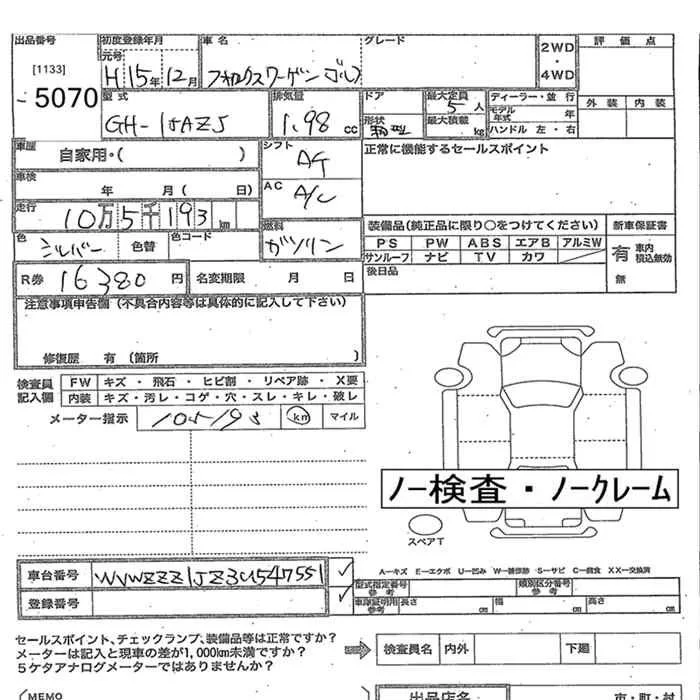 出品番号 初度登録年月 車名 グレード 2WD・4WD 評価点
[1133] 元号 H15年12月 フォルクスワーゲン ゴルフ
5070 型式 排気量 ドア 最大定員 5人 ディーラー・並行 外装 内装
GH-1JAZJ 1.98 cc 形状 最大積載 kg モデル年式 年
ハンドル 左・右
車歴 自家用・( ) シフト AT 正常に機能するセールスポイント
車検 年 月(日) AC A/C
走行 10万5千193 km 燃料 ガソリン 装備品(純正品に限り○をつけてください) 新車保証書
色 シルバー 色替 色コード PS PW ABS エアB アルミW 有 車内積込無効
サンルーフ ナビ TV カワ 無
R券 16380円 名変期限 月 日 後日品
注意事項申告欄(不具合内容等は具体的に記入して下さい)
修復歴 有(箇所 )
検査員記入欄 FW キズ・飛石・ヒビ割・リペア跡・X要
内装 キズ・汚レ・コゲ・穴・スレ・キレ・破レ
メーター指示 105193 km マイル
ノー検査・ノークレーム
スペアT
A-キズ E-エクボ U-凹み W-補修跡 S-サビ C-腐食 XX-交換済
車台番号 WVWZZZ1JZ3U547551 型式指定番号 参考 類別区分番号 参考
登録番号 車庫証明用 参考 長さ cm 幅 cm 高さ cm
セールスポイント、チェックランプ、装備品等は正常ですか?
メーターは記入と現車の差が1,000km未満ですか? 検査員名 内外 下廻
5ケタアナログメーターではありませんか?
MEMO 出品店名 市・町・村